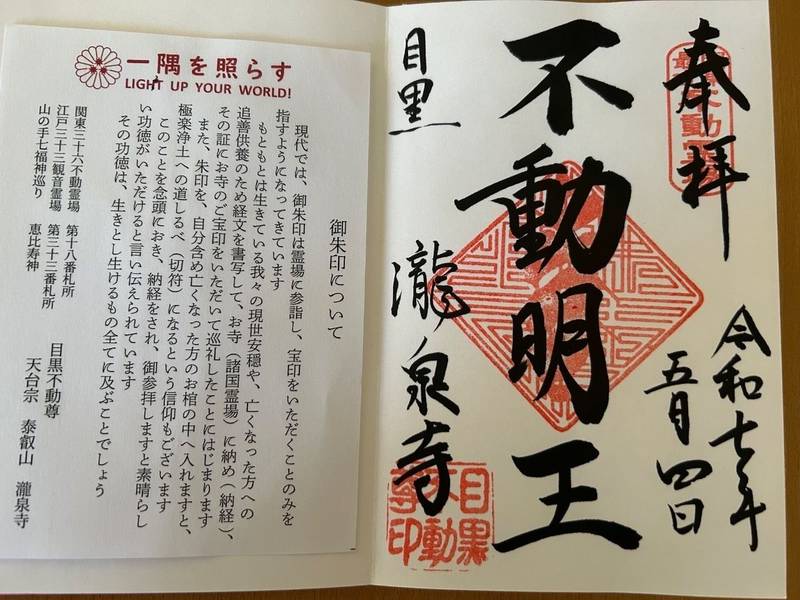 一隅を照らす
LIGHT UP YOUR WORLD!
御朱印について
現代では、御朱印は霊場に参詣し、宝印をいただくことのみを
指すようになってきています
もともとは生きている我々の現世安穏や、亡くなった方への
追善供養のため経文を書写して、お寺（諸国霊場）に納め（納経）、
その証にお寺のご宝印をいただいて巡礼したことにはじまります
また、朱印を、自分含め亡くなった方のお棺の中へ入れますと、
極楽浄土への道しるべ（切符）になるという信仰もございます
このことを念頭におき、納経をされ、御参拝しますと素晴らし
い功徳がいただけると言い伝えられています
その功徳は、生きとし生けるもの全てに及ぶことでしょう
関東三十六不動霊場 第十八番札所
江戸三十三観音霊場 第三十三番札所
山の手七福神巡り 恵比寿神
目黒不動尊
天台宗 泰叡山 瀧泉寺
奉拝
令和七年
五月四日
不動明王
目黒
瀧泉寺
目黒
不動
寺印